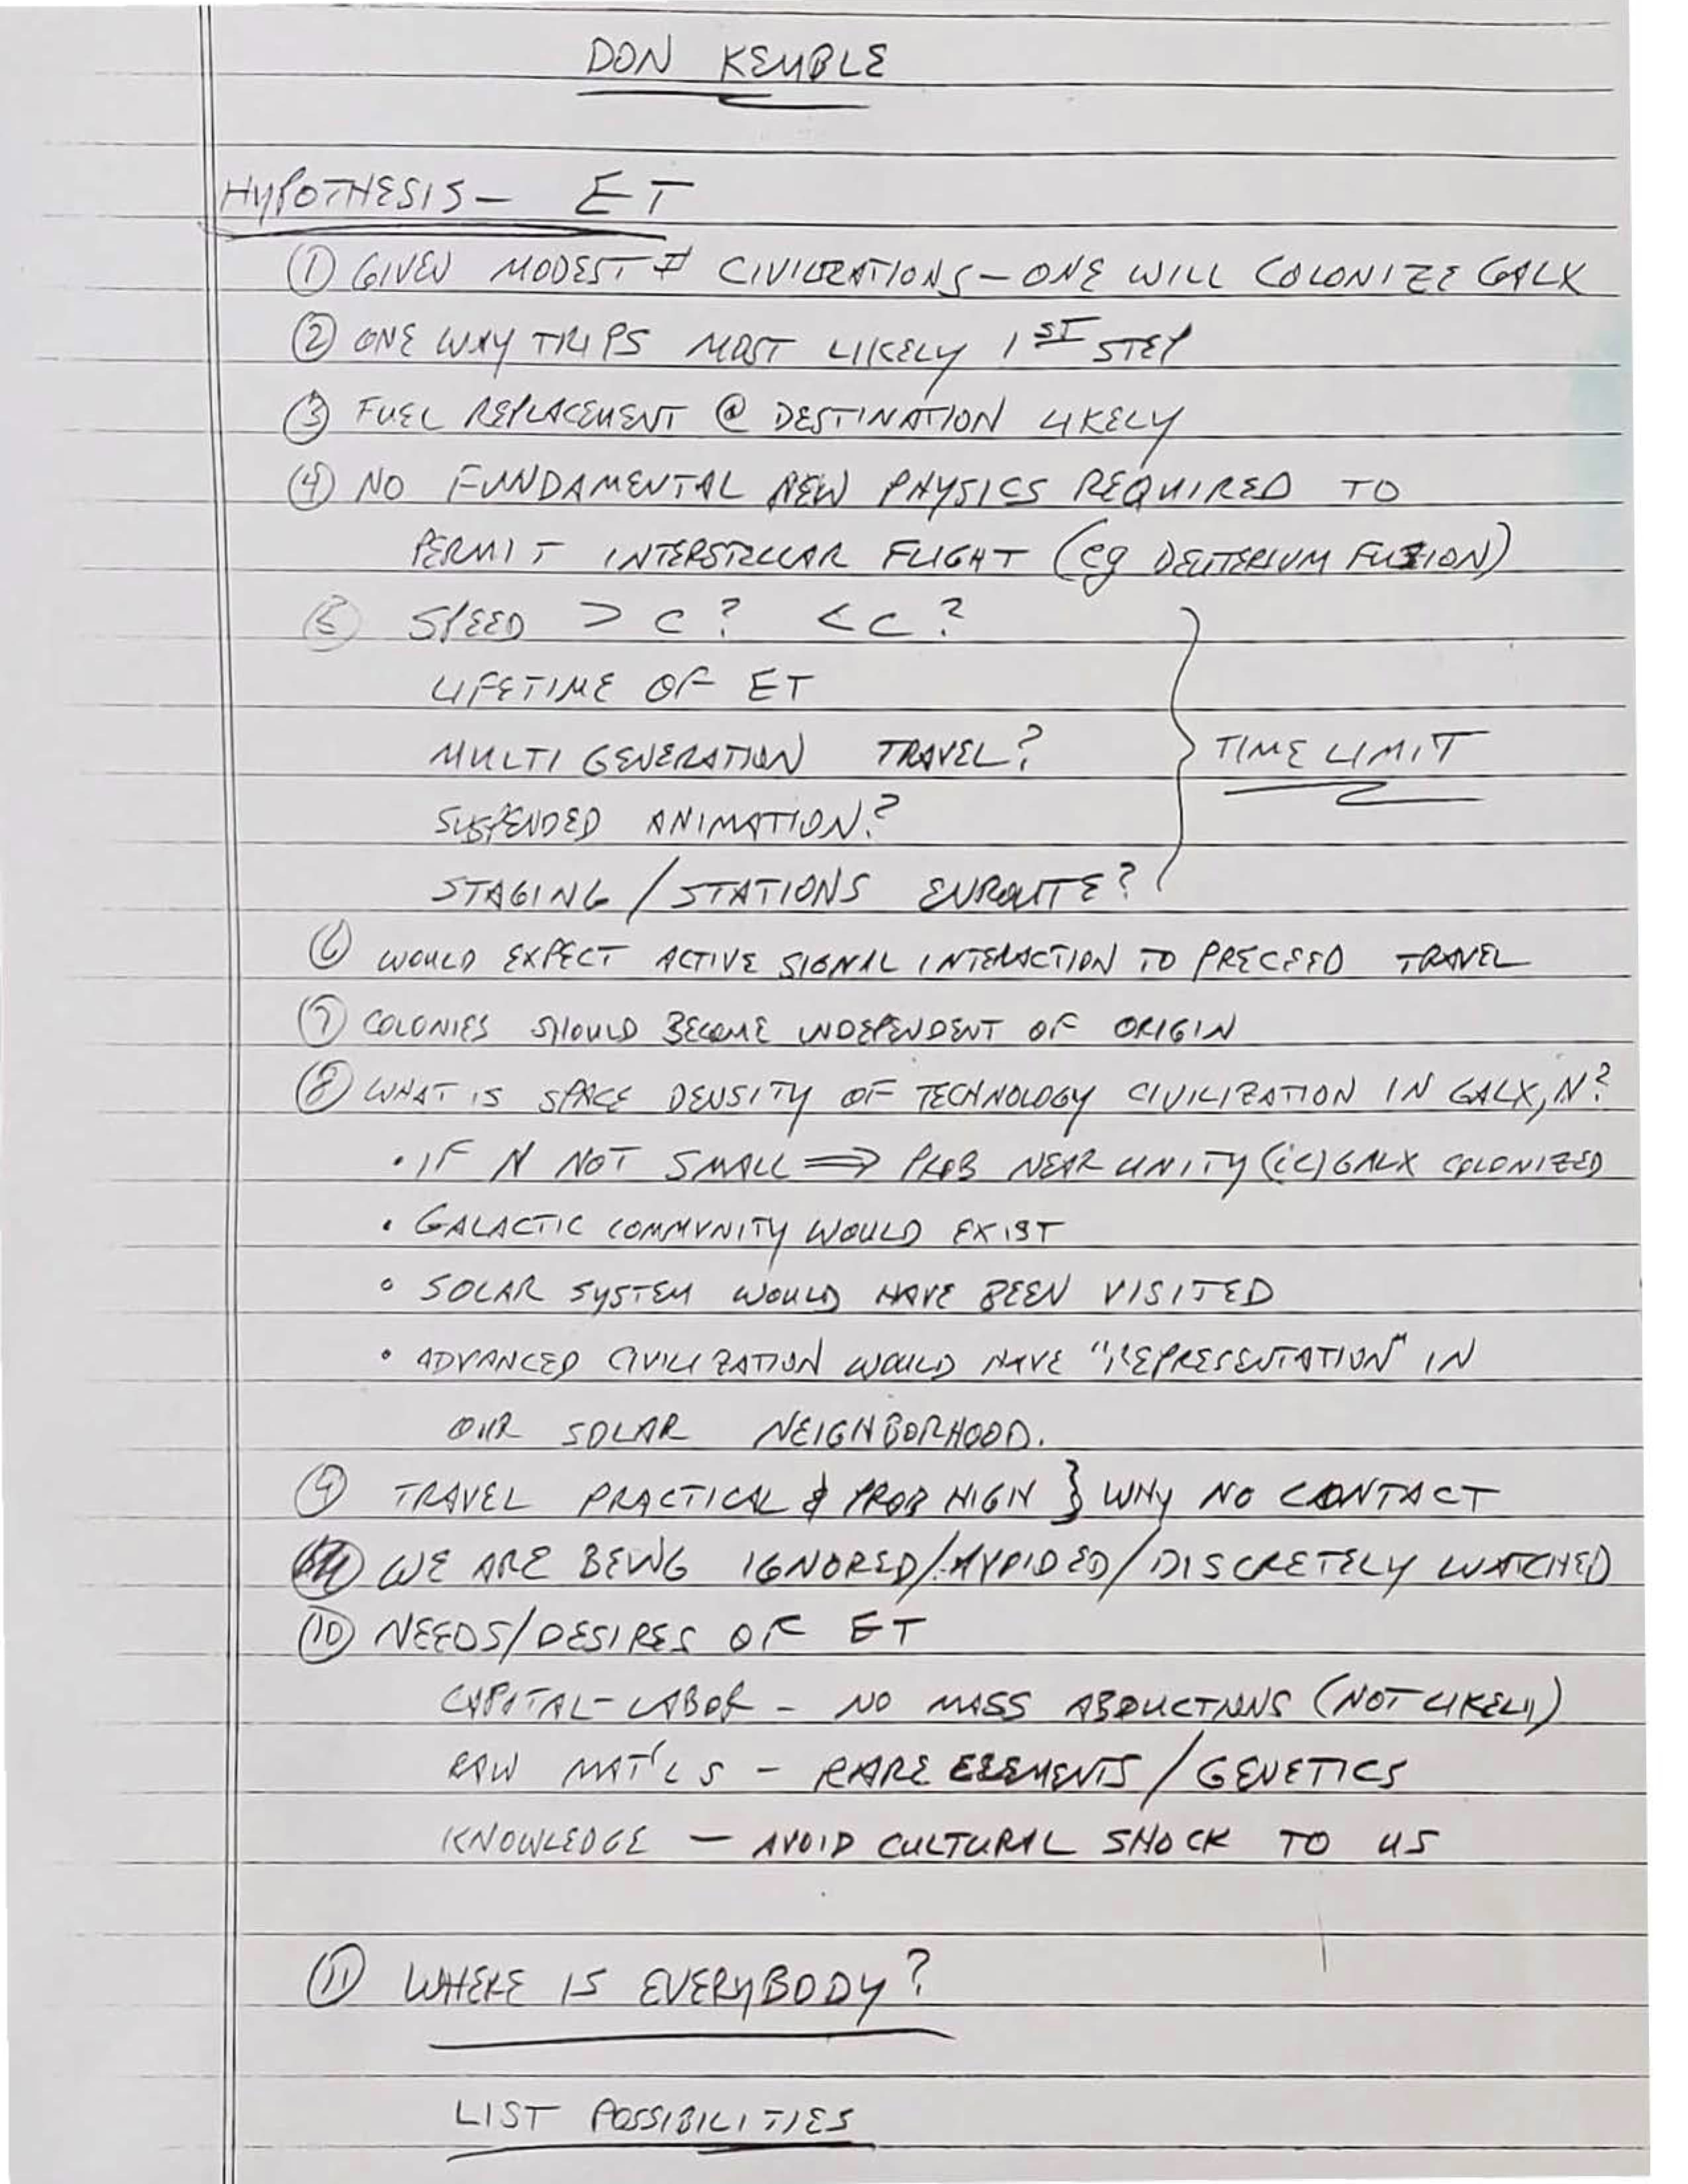 DON KEMBLE
HYPOTHESIS - ET
① GIVEN MODEST # CIVILIZATIONS - ONE WILL COLONIZE GALX
② ONE WAY TRIPS MOST LIKELY 1ST STEP
③ FUEL REPLACEMENT @ DESTINATION LIKELY
④ NO FUNDAMENTAL NEW PHYSICS REQUIRED TO
PERMIT INTERSTELLAR FLIGHT (eg DEUTERIUM FUSION)
⑤ SPEED > C? < C?
LIFETIME OF ET
MULTI GENERATION TRAVEL? } TIME LIMIT
SUSPENDED ANIMATION?
STAGING / STATIONS ENROUTE?
⑥ WOULD EXPECT ACTIVE SIGNAL INTERACTION TO PRECEED TRAVEL
⑦ COLONIES SHOULD BECOME INDEPENDENT OF ORIGIN
⑧ WHAT IS SPACE DENSITY OF TECHNOLOGY CIVILIZATION IN GALX, N?
• IF N NOT SMALL ⇒ PROB NEAR UNITY (ie) GALX COLONIZED
• GALACTIC COMMUNITY WOULD EXIST
• SOLAR SYSTEM WOULD HAVE BEEN VISITED
• ADVANCED CIVILIZATION WOULD HAVE "REPRESENTATION" IN
OUR SOLAR NEIGHBORHOOD.
⑨ TRAVEL PRACTICAL & PROB HIGH } WHY NO CONTACT
WE ARE BEING IGNORED/AVOIDED/DISCRETELY WATCHED
⑩ NEEDS/DESIRES OF ET
CAPITAL-LABOR - NO MASS ABDUCTIONS (NOT LIKELY)
RAW MAT'LS - RARE ELEMENTS / GENETICS
KNOWLEDGE - AVOID CULTURAL SHOCK TO US
⑪ WHERE IS EVERYBODY?
LIST POSSIBILITIES